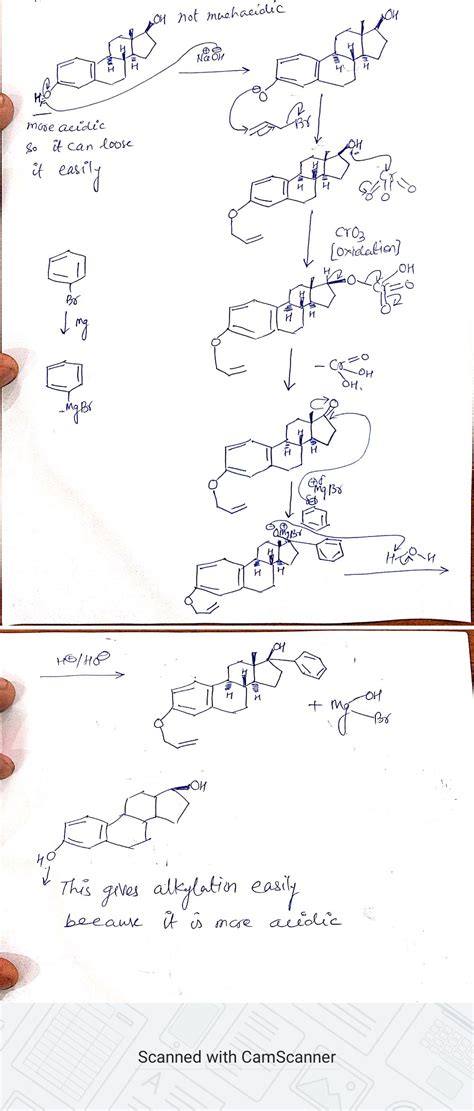 OH not much acidic
H
H
H
H2O
NaOH
more acidic
so it can loose
it easily
OH
H
H
H
O
Br
OH
H
H
H
O
Cr
O
O
O
CrO3
[oxidation]
Br
Mg
MgBr
H
O
Cr
OH
O
O
H
H
H
O
- Cr
O
OH
OH.
O
H
H
H
O
MgBr
OMgBr
H
H
H
O
H-O-H
H⊕/HO⊖
OH
H
H
H
O
+ Mg
OH
Br
OH
HO
This gives alkylation easily
because it is more acidic
Scanned with CamScanner